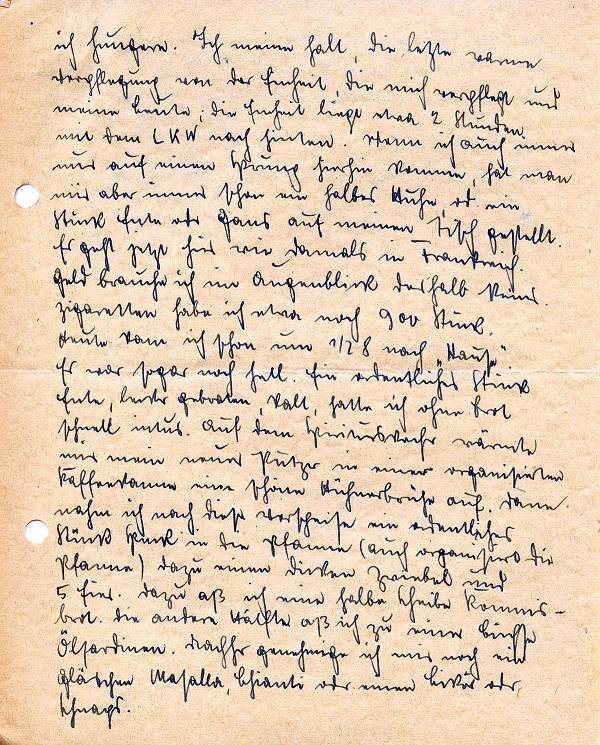 ich hungere. Ich meine halt, die letzte warme
Verpflegung von der Einheit, die mich verpflegt und
meine Leute, die Einheit liegt etwa 2 Stunden
mit dem LKW nach hinten. Wenn ich auch immer
nur auf einen Sprung hierhin komme, hat man
mir aber immer schon ein halbes Huhn, od. ein
Stück Ente oder Gans auf meinen Tisch gestellt.
Es geht jetzt hier wie damals in Frankreich.
Geld brauche ich im Augenblick deshalb keins.
Zigaretten habe ich etwa noch 900 Stück.
Heute kam ich schon um 1/2 8 nach „Hause“.
Es war sogar noch hell. Ein ordentliches Stück
Ente, gebraten, kalt, hatte ich ohne Brot
schnell intus. Auf dem Spirituskocher wärmte
mir mein neuer Putzer in einer organisierten
Kaffeekanne eine schöne Hühnerbrühe auf. Dann
nahm ich nach dieser Vorspeise ein ordentliches
Stück Speck in die Pfanne (auch organisiert die
Pfanne) dazu einen dicken Zwiebel und
5 Eier. Dazu aß ich eine halbe Scheibe Kommis-
brot. Die andere Hälfte aß ich zu einer Büchse
Ölsardinen. Nachher genehmige ich mir noch ein
Gläschen Masalla, Chianti oder einen Likör oder
Schnaps.